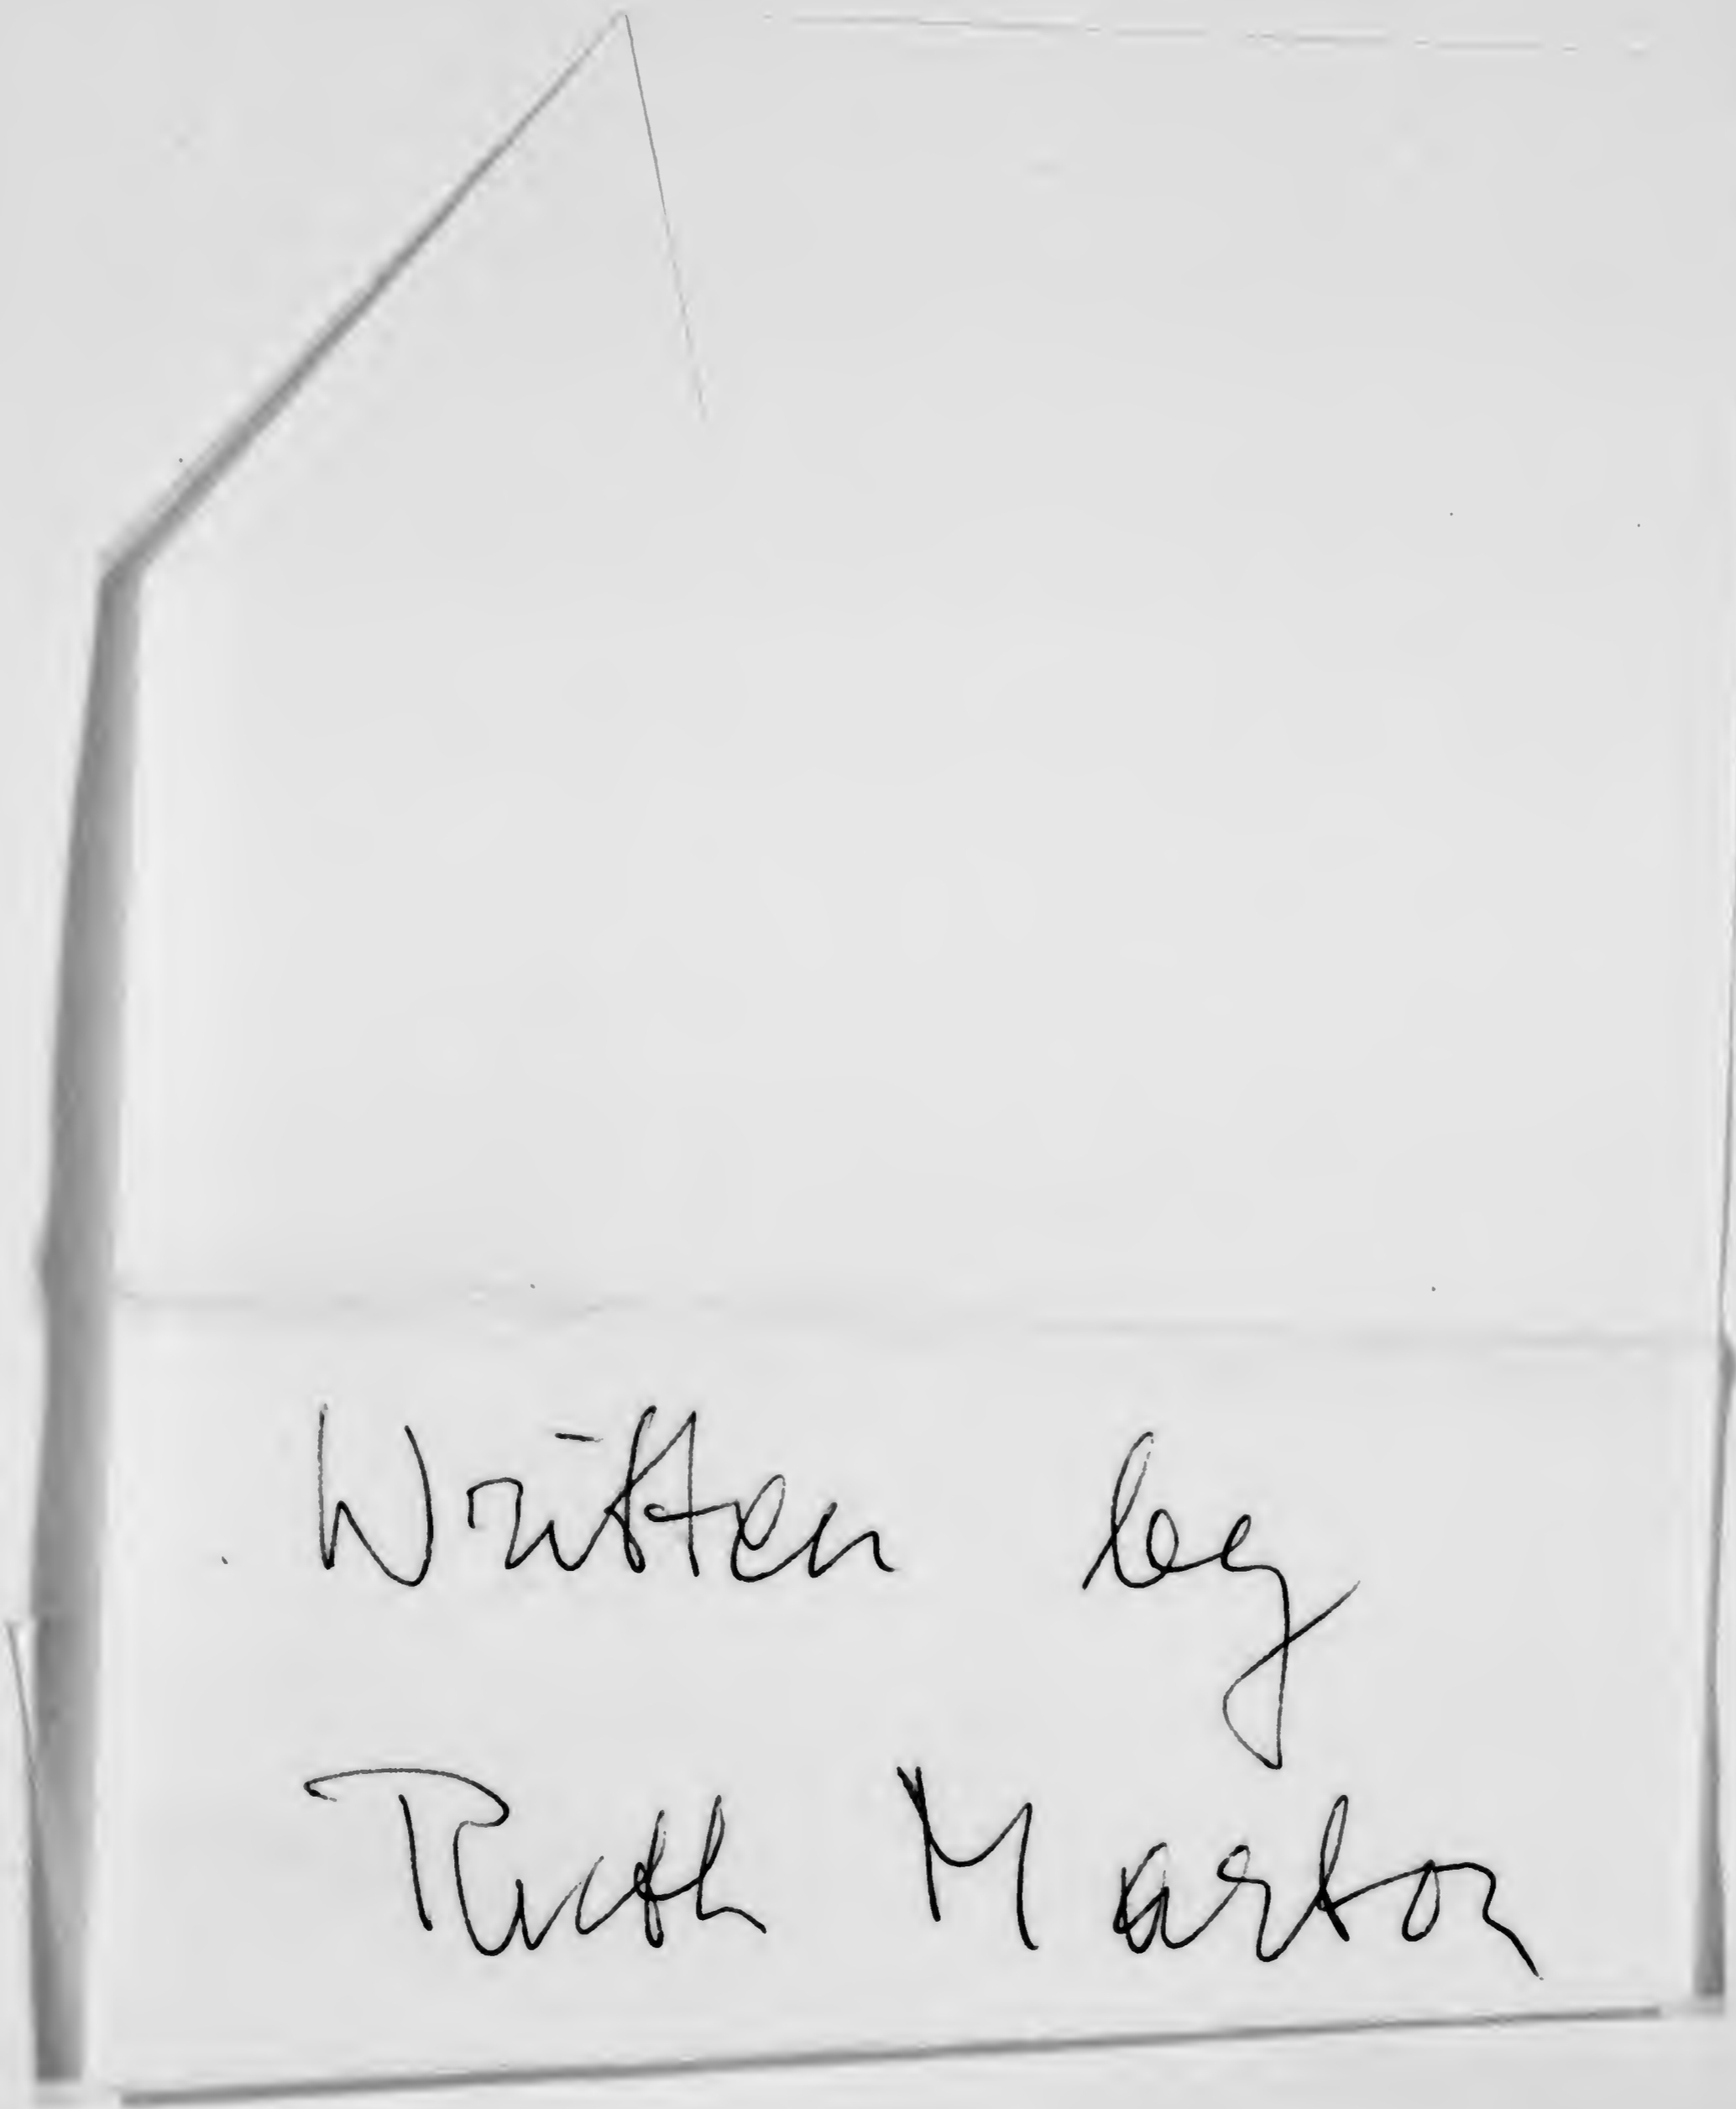 Written by
Ruth Marton